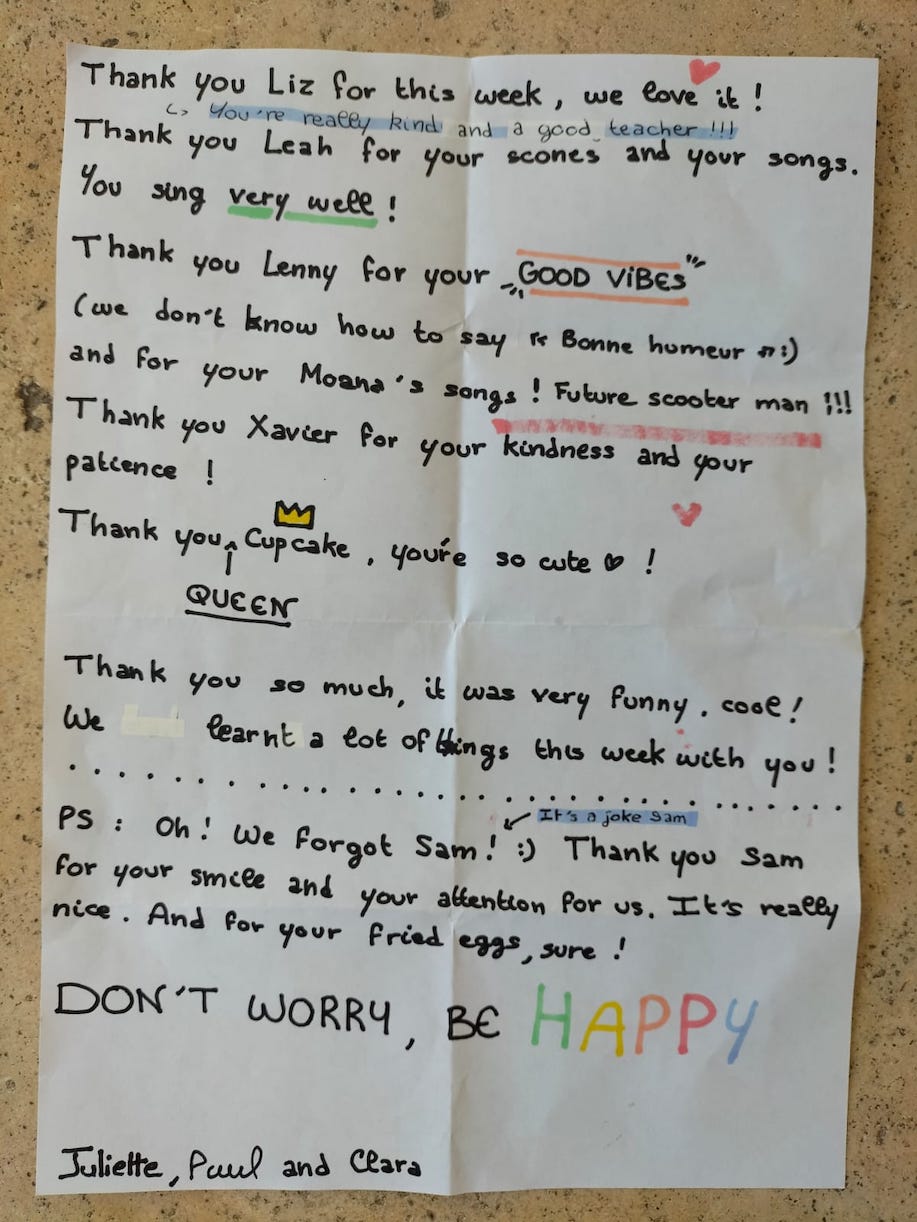 Thank you Liz for this week, we love it !
↳ You're really kind and a good teacher !!!
Thank you Leah for your scones and your songs.
You sing very well !
Thank you Lenny for your GOOD ViBES
(we don't know how to say « Bonne humeur » :)
and for your Moana's songs ! Future scooter man !!!
Thank you Xavier for your kindness and your
patience !
Thank you Cupcake, you're so cute ♡ !
QUEEN
Thank you so much, it was very funny. cool !
We learnt a lot of things this week with you !
It's a joke Sam
PS : Oh ! We forgot Sam ! :) Thank you Sam
for your smile and your attention for us. It's really
nice. And for your fried eggs, sure !
DON'T WORRY, BE HAPPY
Juliette, Paul and Clara